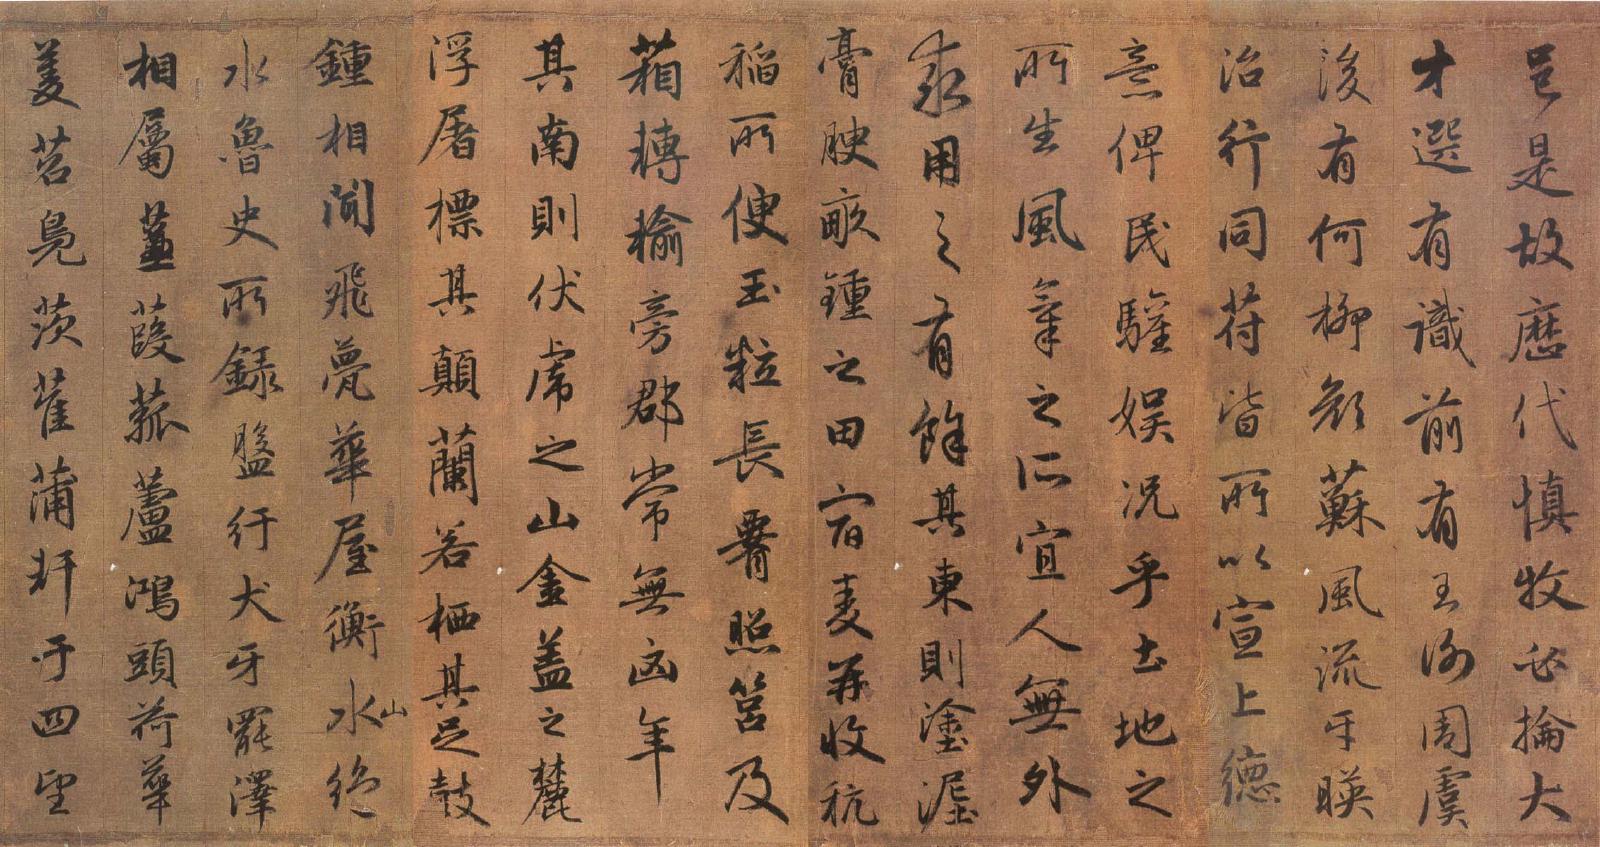 邑是故歷代慎牧必掄大
才選有識前有王謝周虞
後有何柳顏蘇風流互暎
治行同苻皆所以宣上德
意俾民驩娛況乎土地之
所生風氣之所宜人無外
求用之有餘其東則塗泥
膏腴畝鍾之田宿麥再收秔
稻所便玉粒長腰照筥及
箱轉輸旁郡常無凶年
其南則伏虎之山金蓋之麓
浮屠標其顛蘭若栖其足鼓
鍾相聞飛甍華屋衡水山絕
水魯史所録盤紆犬牙罷澤
相屬蒹葭菰蘆鴻頭荷華
菱苕鳧茨萑蒲軒于四望